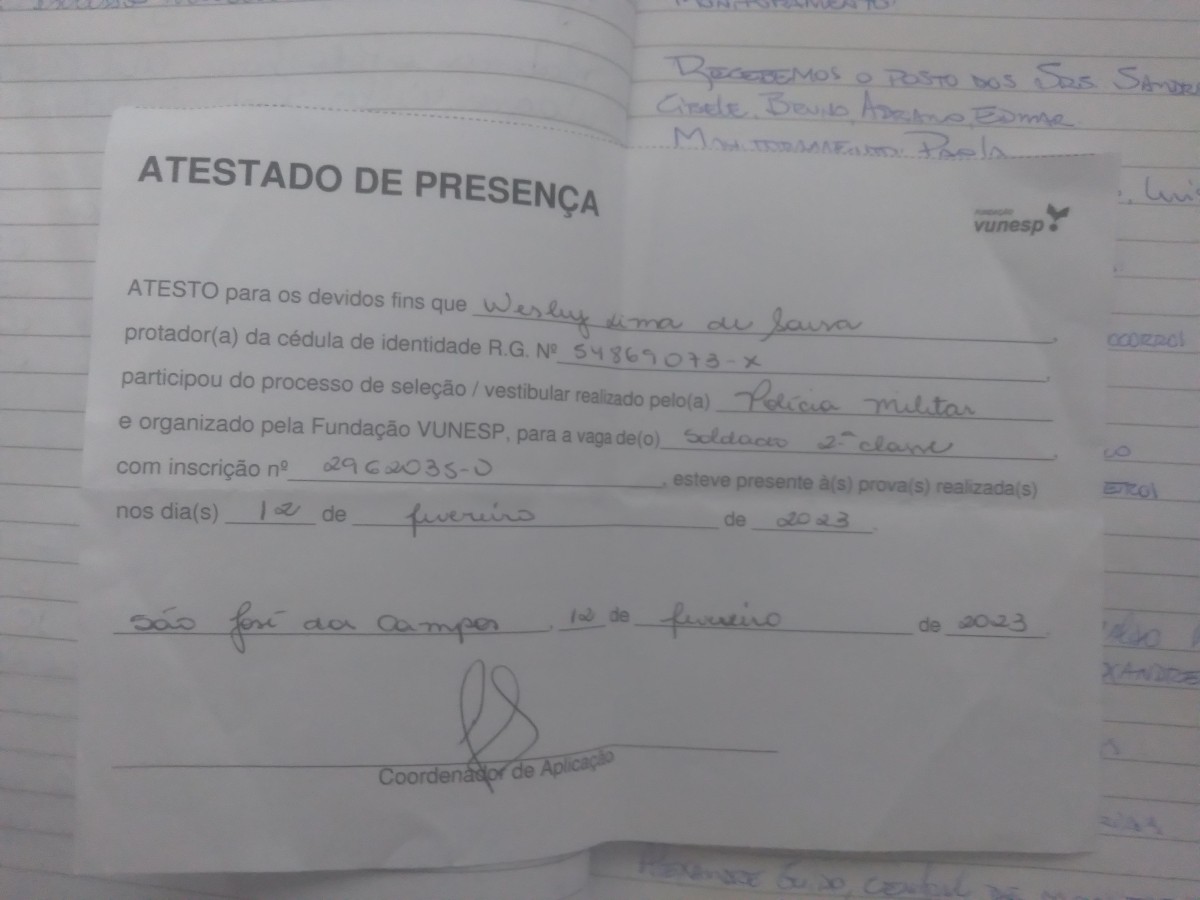 MONITORAMENTO.
RECEBEMOS O POSTO DOS SRS. SANDR
Gisele, Bruno, ADRIANO, EDMAR
MONITORAMENTO: Paola
, Luis
ATESTADO DE PRESENÇA
FUNDAÇÃO
vunesp
ATESTO para os devidos fins que Wesley Lima de Sousa,
protador(a) da cédula de identidade R.G. Nº 54869073-X,
participou do processo de seleção / vestibular realizado pelo(a) Polícia Militar
e organizado pela Fundação VUNESP, para a vaga de(o) Soldado 2ª classe,
com inscrição nº 2962035-0, esteve presente à(s) prova(s) realizada(s)
nos dia(s) 12 de fevereiro de 2023.
São José dos Campos, 12 de fevereiro de 2023
Coordenador de Aplicação
XANDRE